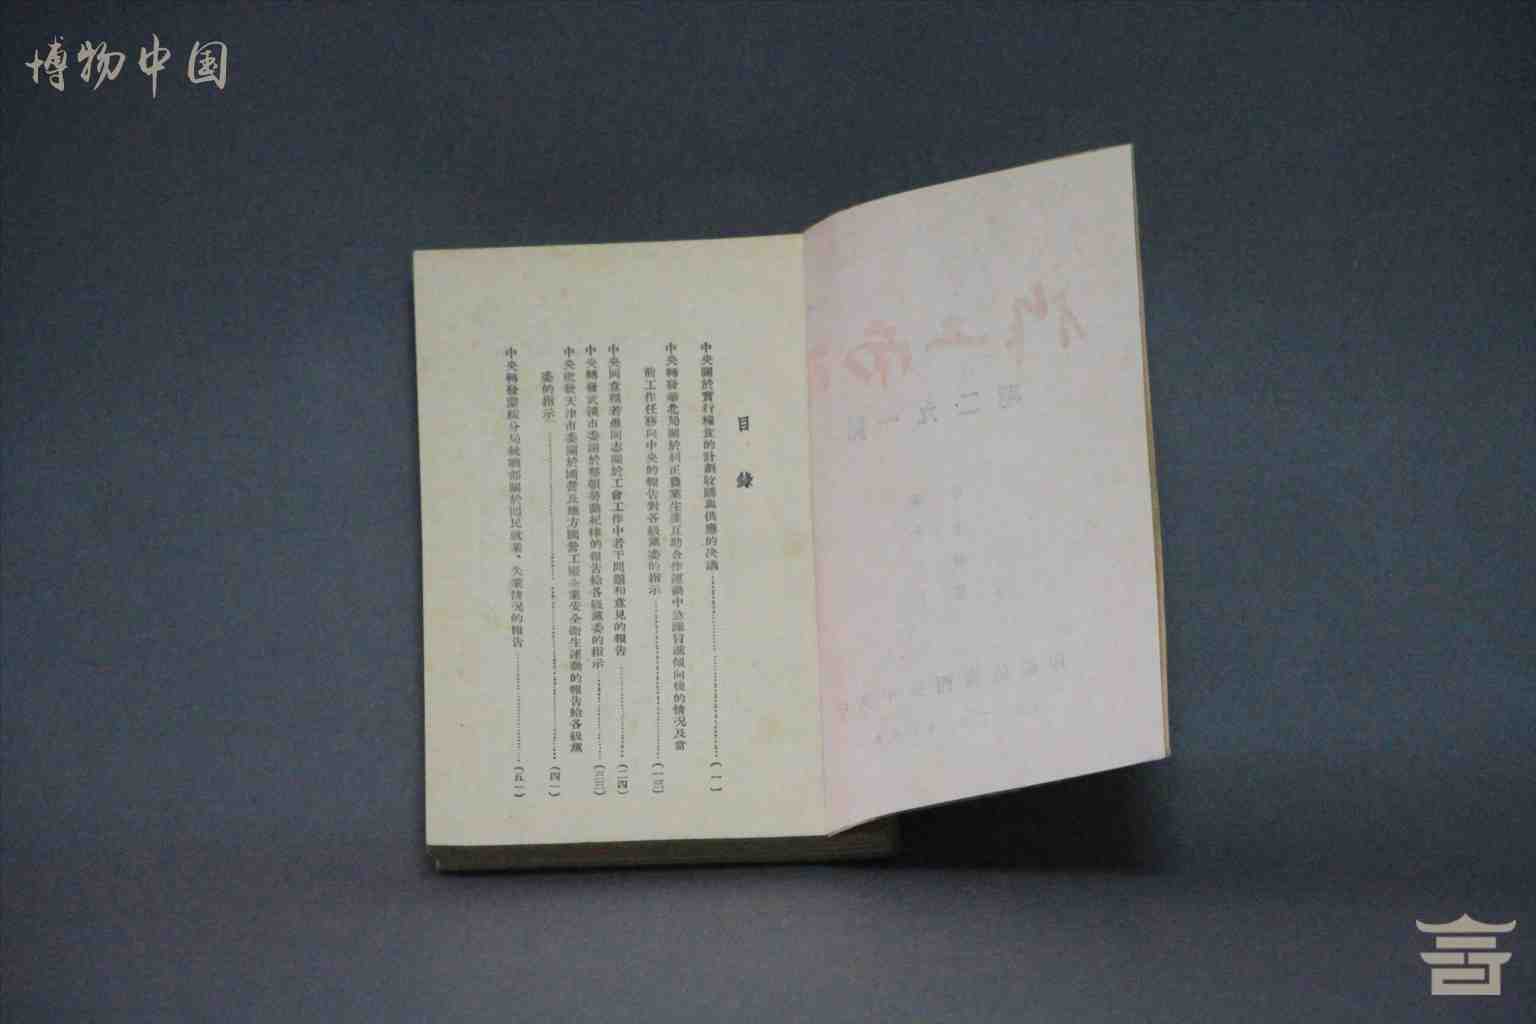 博物中国
目錄
中央關於實行糧食的計劃收購與供應的決議………………（一）
中央轉發華北局關於糾正農業生產互助合作運動中急躁冒進傾向後的情况及當
前工作任務向中央的報告對各級黨委的指示………………（一三）
中央同意賴若愚同志關於工會工作中若干問題和意見的報告………………（二四）
中央轉發武漢市委關於整頓勞動紀律的報告給各級黨委的指示………………（三三）
中央批發天津市委關於國營及地方國營工廠企業安全衛生運動的報告給各級黨
委的指示………………（四一）
中央轉發蒙綏分局統戰部關於回民就業、失業情况的報告………………（五一）